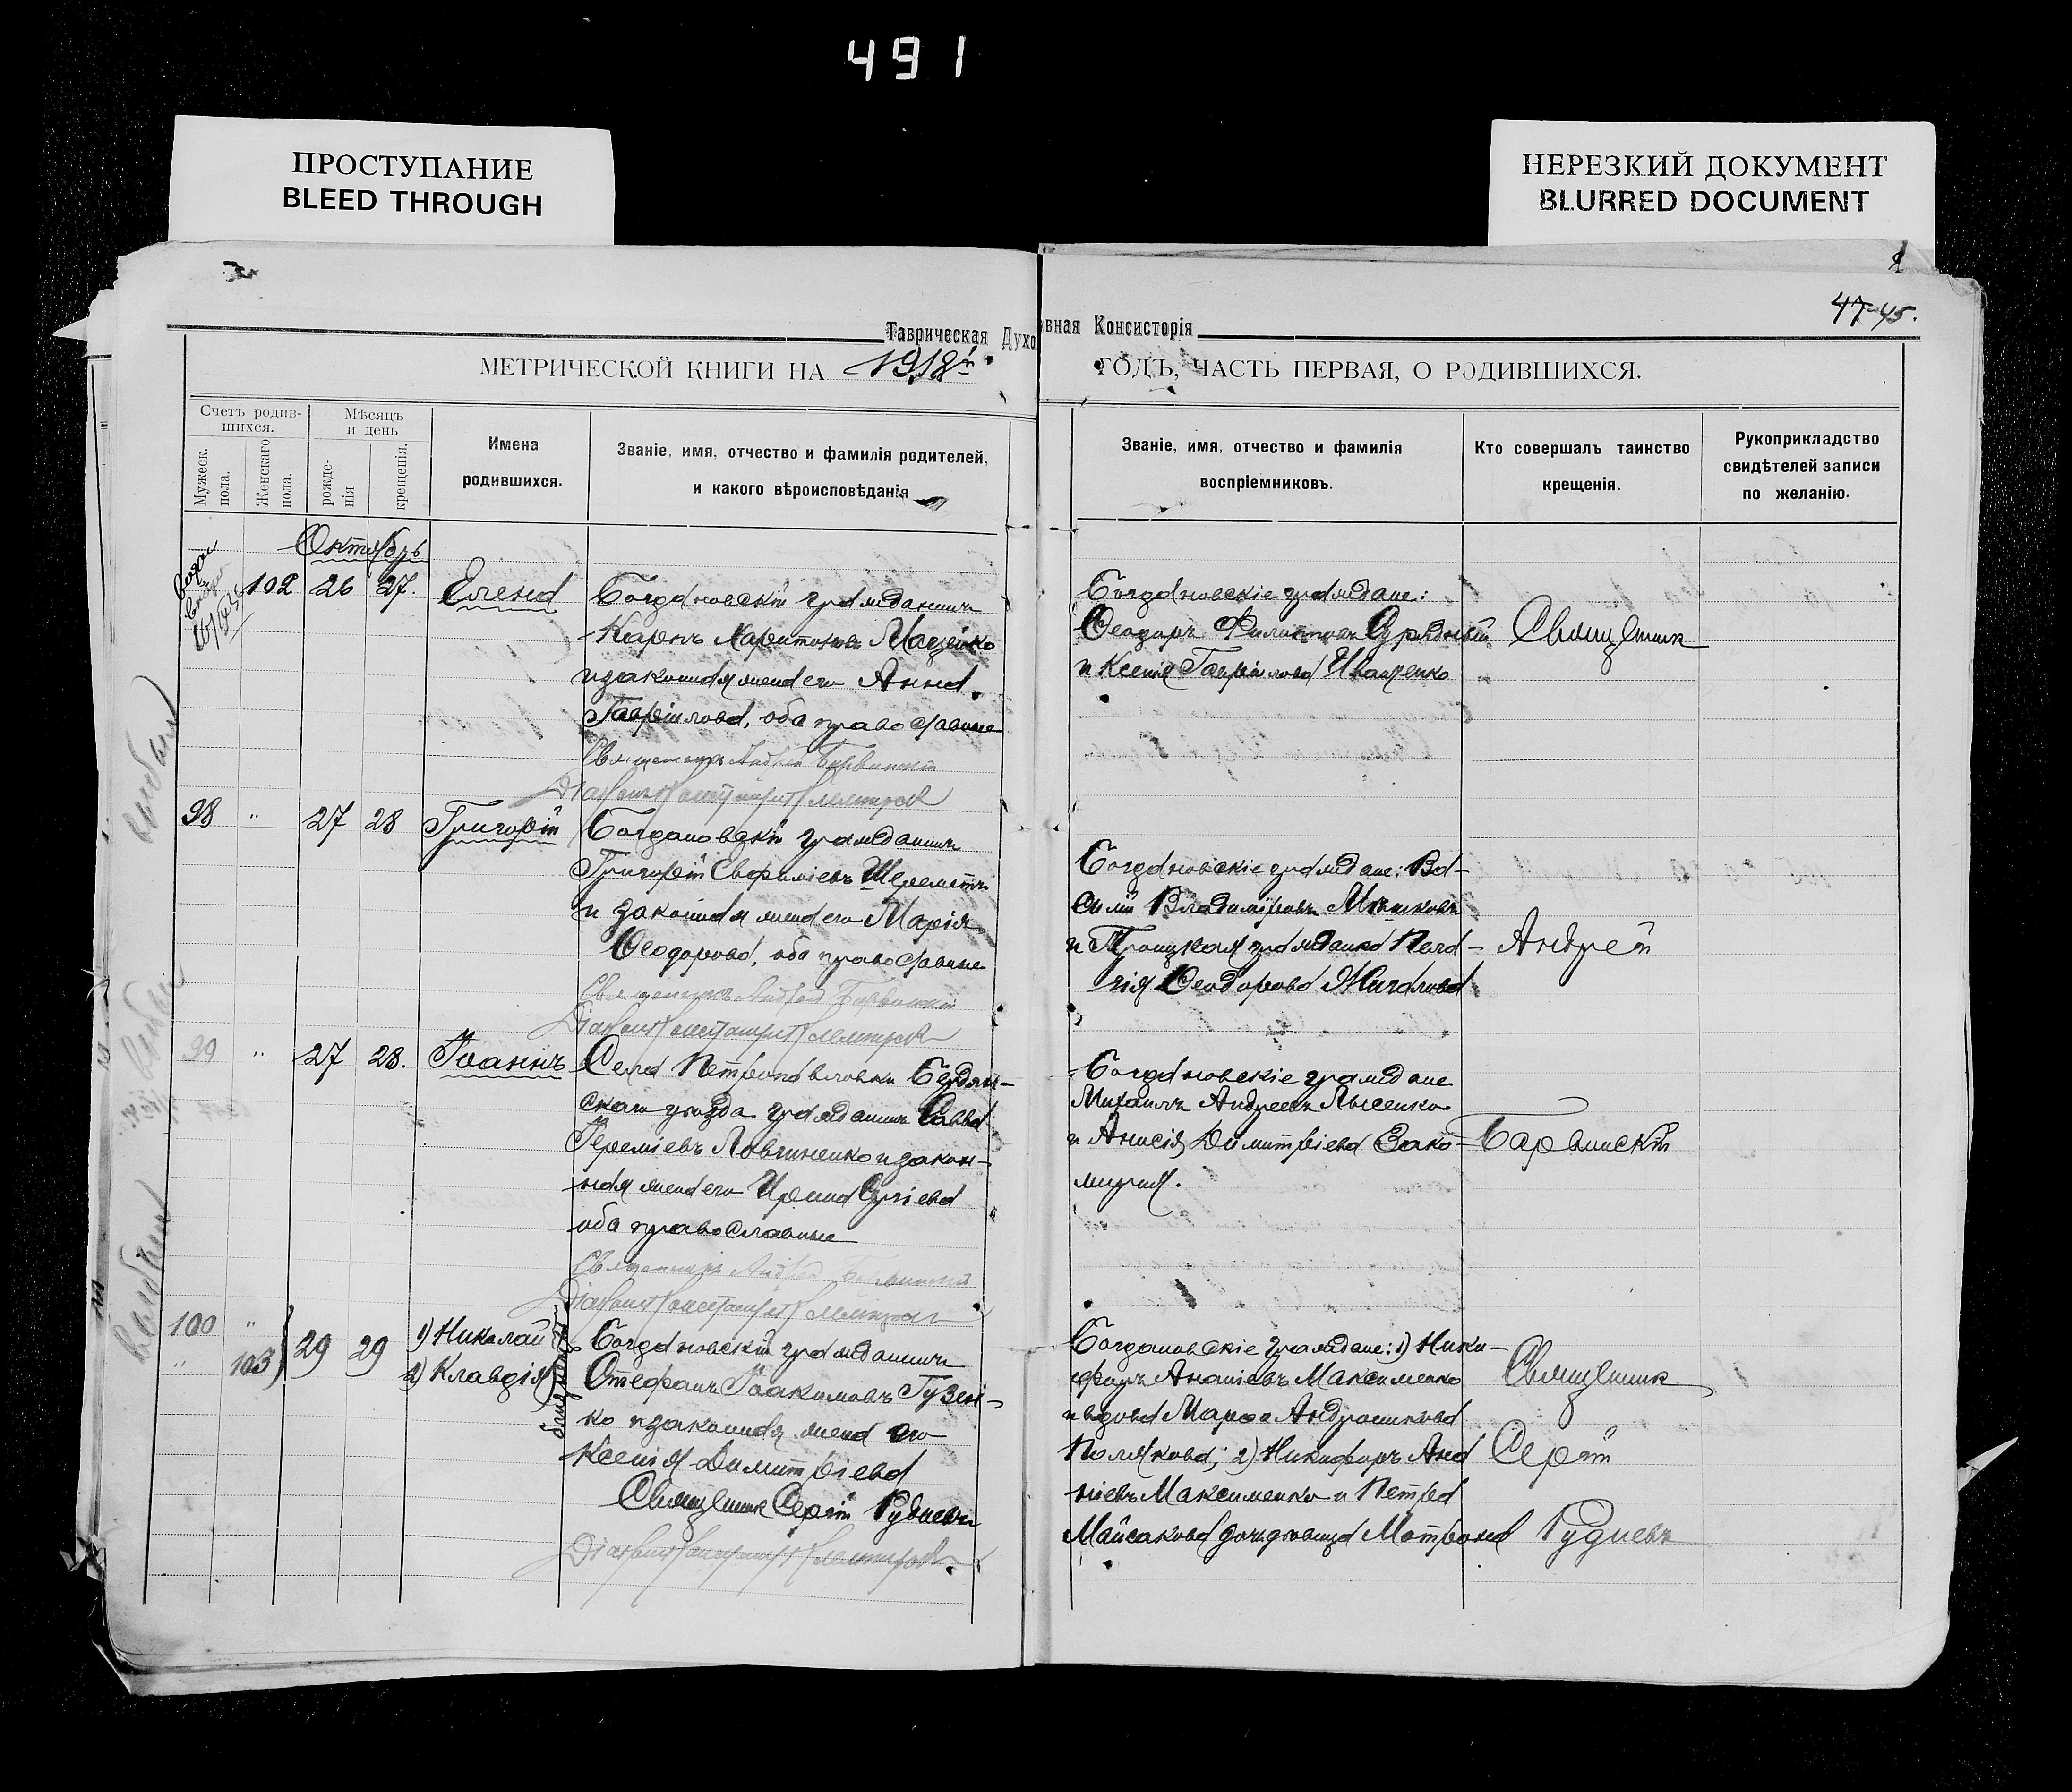 491
ПРОСТУПАНИЕ
BLEED THROUGH
НЕРЕЗКИЙ ДОКУМЕНТ
BLURRED DOCUMENT
47 45.
Таврическая Духовная Консисторія
МЕТРИЧЕСКОЙ КНИГИ НА 1918 ГОДЪ, ЧАСТЬ ПЕРВАЯ, О РОДИВШИХСЯ.
Счетъ родив-
шихся.
Мужеск. пола.
Женскаго пола.
Мѣсяцъ
и день
рожде-
нія
крещенія.
Имена
родившихся.
Званіе, имя, отчество и фамилія родителей,
и какого вѣроисповѣданія
Званіе, имя, отчество и фамилія
воспріемниковъ.
Кто совершалъ таинство
крещенія.
Рукоприкладство
свидѣтелей записи
по желанію.
Октябрь
102 26 27. Елена
Богдановскій гражданинъ
Карпъ Харитоновъ Мацейко
и законная жена его Анна
Гавріилова, оба православные
Священникъ Андрей Барвинскій
Діаконъ Константинъ
Богдановскіе граждане:
Ѳеодоръ Филиповъ
и Ксенія Гавріилова Иванченко
Священникъ
98 " 27 28 Григорій
Богдановскій гражданинъ
Григорій Евфиміевъ Шереметъ
и законная жена его Марія
Ѳеодорова, оба православные
Священникъ Андрей Барвинскій
Діаконъ Константинъ
Богдановскіе граждане: Ва-
силій Владиміровъ Мышковъ
и Троицкая гражданка Пела-
гія Ѳеодорова Жигалова
Андрей
99 " 27 28. Іоаннъ
Села Петропавловки Бердян-
скаго уѣзда гражданинъ Савва
Іереміевъ Ловчиненко и закон-
ная жена его Ирина Сергіева
оба православные
Священникъ Андрей Барвинскій
Діаконъ Константинъ
Богдановскіе граждане
Михаилъ Андреевъ Лысенко
и Анисія Димитріева Зако-
мирная.
Барвинскій
100 "
" 103 29 29
1) Николай
2) Клавдія
близнецы
Богдановскій гражданинъ
Стефанъ Іоакимовъ Гузен-
ко и законная жена его
Ксенія Димитріева
Священникъ Сергій Рудневъ
Діаконъ Константинъ
Богдановскіе граждане: 1) Ники-
форъ Ананіевъ Максименко
и вдова Марѳа Андроникова
Полякова; 2) Никифоръ Ана
ніевъ Максименко и Петра
Майсакова дочь девица Матрона
Священникъ
Сергій
Рудневъ